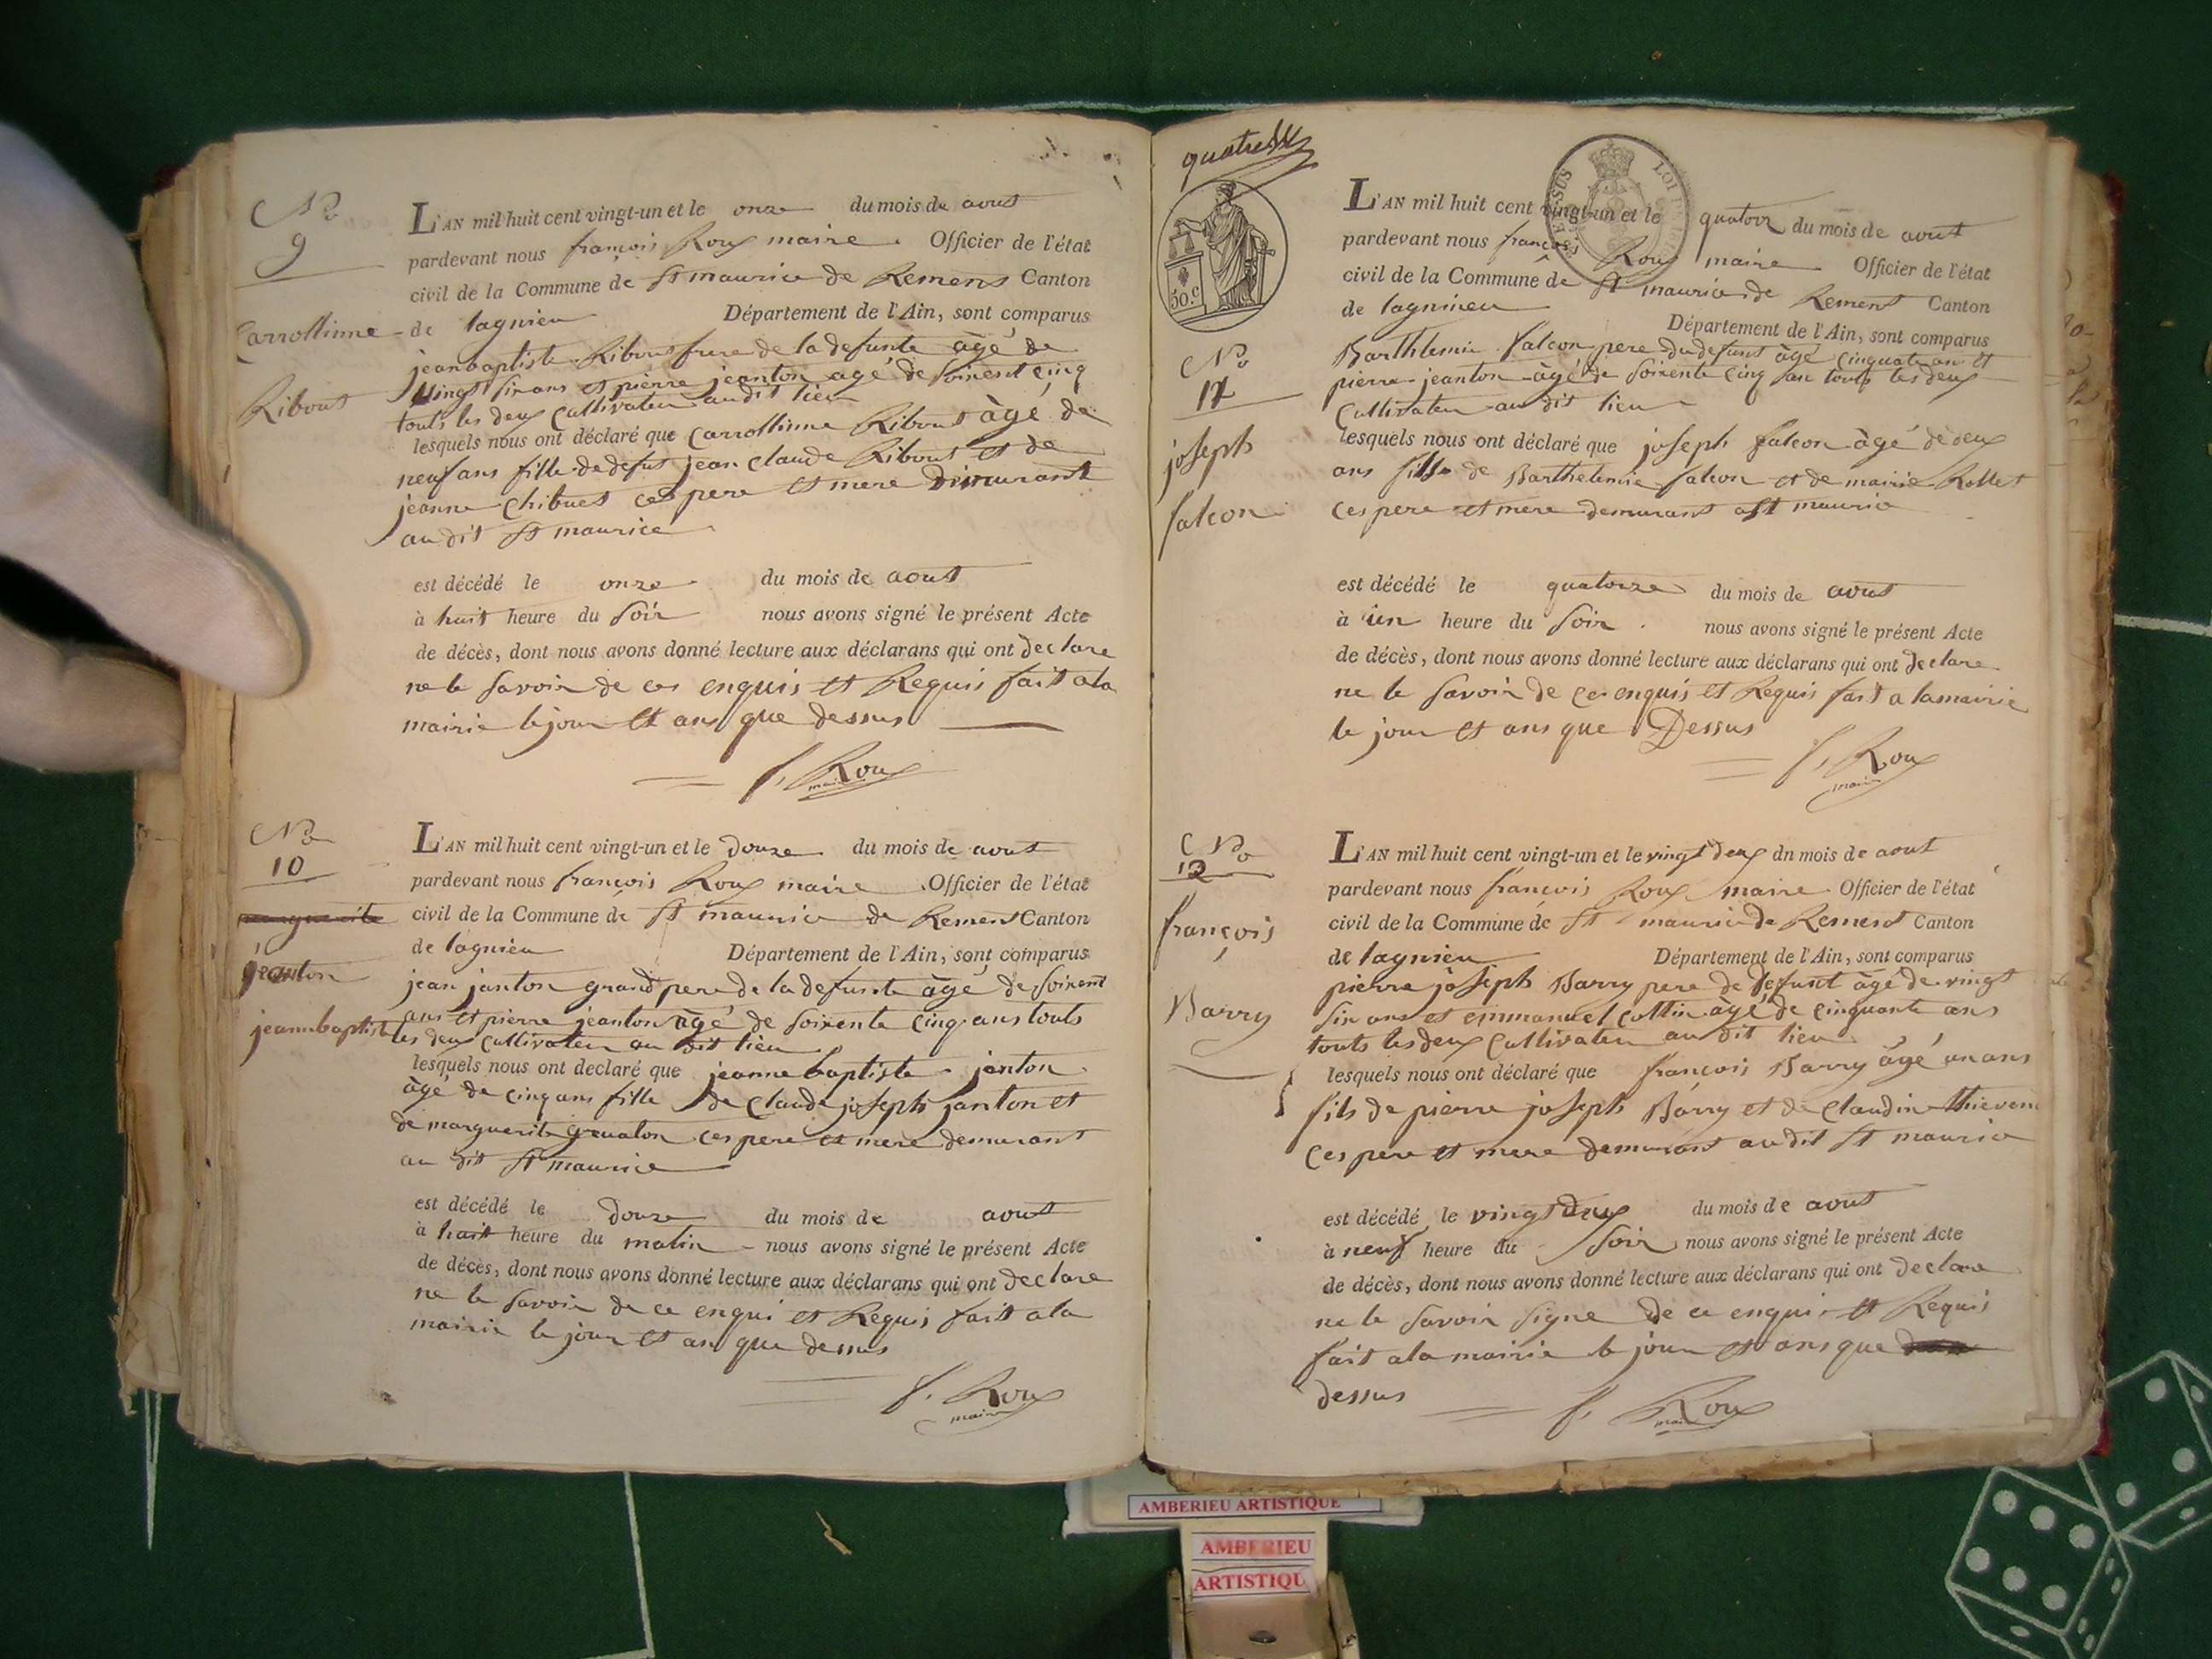 No
9
Carrollinne
Ribout
L'AN mil huit cent vingt-un et le onze du mois de aout
pardevant nous françois Roux maire Officier de l'état
civil de la Commune de St maurice de Remens Canton
de lagnieu Département de l'Ain, sont comparus
jean baptiste Ribout frere de la defunte âgé de
vingt six ans et pierre jeanton agé de soixent cinq
touts les deux Cultivateur audit lieu
lesquels nous ont déclaré que Carrollinne Ribout âgé de
neuf ans fille de defut jean Claude Ribout et de
jeanne Chibuet ces pere et mere Dimurant
au dit St maurice
est décédé le onze du mois de aout
à huit heure du soir nous avons signé le présent Acte
de décès, dont nous avons donné lecture aux déclarans qui ont declare
ne le savoir de ces enquis et Requis fait a la
mairie le jour et ans que dessus
f. Roux
maire
No
10
marguerite
jeanton
jeanne baptiste
L'AN mil huit cent vingt-un et le douze du mois de aout
pardevant nous françois Roux maire Officier de l'état
civil de la Commune de St maurice de Remens Canton
de lagnieu Département de l'Ain, sont comparus
jean janton grand pere de la defunte âgé de soixent
ans et pierre jeanton âgé de soixente cinq ans touts
les deux Cultivateur au dit lieu
lesquels nous ont declaré que jeanne baptiste janton
âgé de cinq ans fille de Claude joseph janton et
de marguerite ces pere et mere demurant
au dit St maurice
est décédé le douze du mois de aout
à huit heure du matin nous avons signé le présent Acte
de décès, dont nous avons donné lecture aux déclarans qui ont declare
ne le savoir de ce enqui et Requis fait a la
mairie le jour et ans que dessus
f. Roux
maire
quatre
50.c
No
11
joseph
falcon
L'AN mil huit cent vingt-un et le quatorz du mois de aout
pardevant nous françois Roux maire Officier de l'état
civil de la Commune de St maurice de Remens Canton
de lagnineu Département de l'Ain, sont comparus
Barthlemie falcon pere du defunt âgé cinquate an et
pierre jeanton âgé de soixente cinq an touts les deux
Cultivateur au dit lieu
lesquels nous ont déclaré que joseph falcon âgé de deux
ans fils de Barthelemie falcon et de mairie Rollet
ces pere et mere demurant a St maurice
est décédé le quatorze du mois de aout
à un heure du soir nous avons signé le présent Acte
de décès, dont nous avons donné lecture aux déclarans qui ont declare
ne le savoir de ces enquis et Requis fait a la mairie
le jour et ans que Dessus
f. Roux
maire
No
12
françois
Barry
L'AN mil huit cent vingt-un et le vingt deux du mois de aout
pardevant nous françois Roux maire Officier de l'état
civil de la Commune de St maurice de Remens Canton
de lagnieu Département de l'Ain, sont comparus
pierre joseph Barry pere de defunt âgé de vingt
six ans et emmanuel Cottin âgé de cinquante ans
touts les deux Cultivateur au dit lieu
lesquels nous ont déclaré que françois Barry âgé un ans
fils de pierre joseph Barry et de Claudine
Ces pere et mere demurant au dit St maurice
est décédé le vingt deux du mois de aout
à neuf heure du soir nous avons signé le présent Acte
de décès, dont nous avons donné lecture aux déclarans qui ont declare
ne le savoir signe de ce enqui et Requis
fait a la mairie le jour et ans que
dessus
f. Roux
maire
AMBERIEU ARTISTIQUE
AMBERIEU
ARTISTIQU